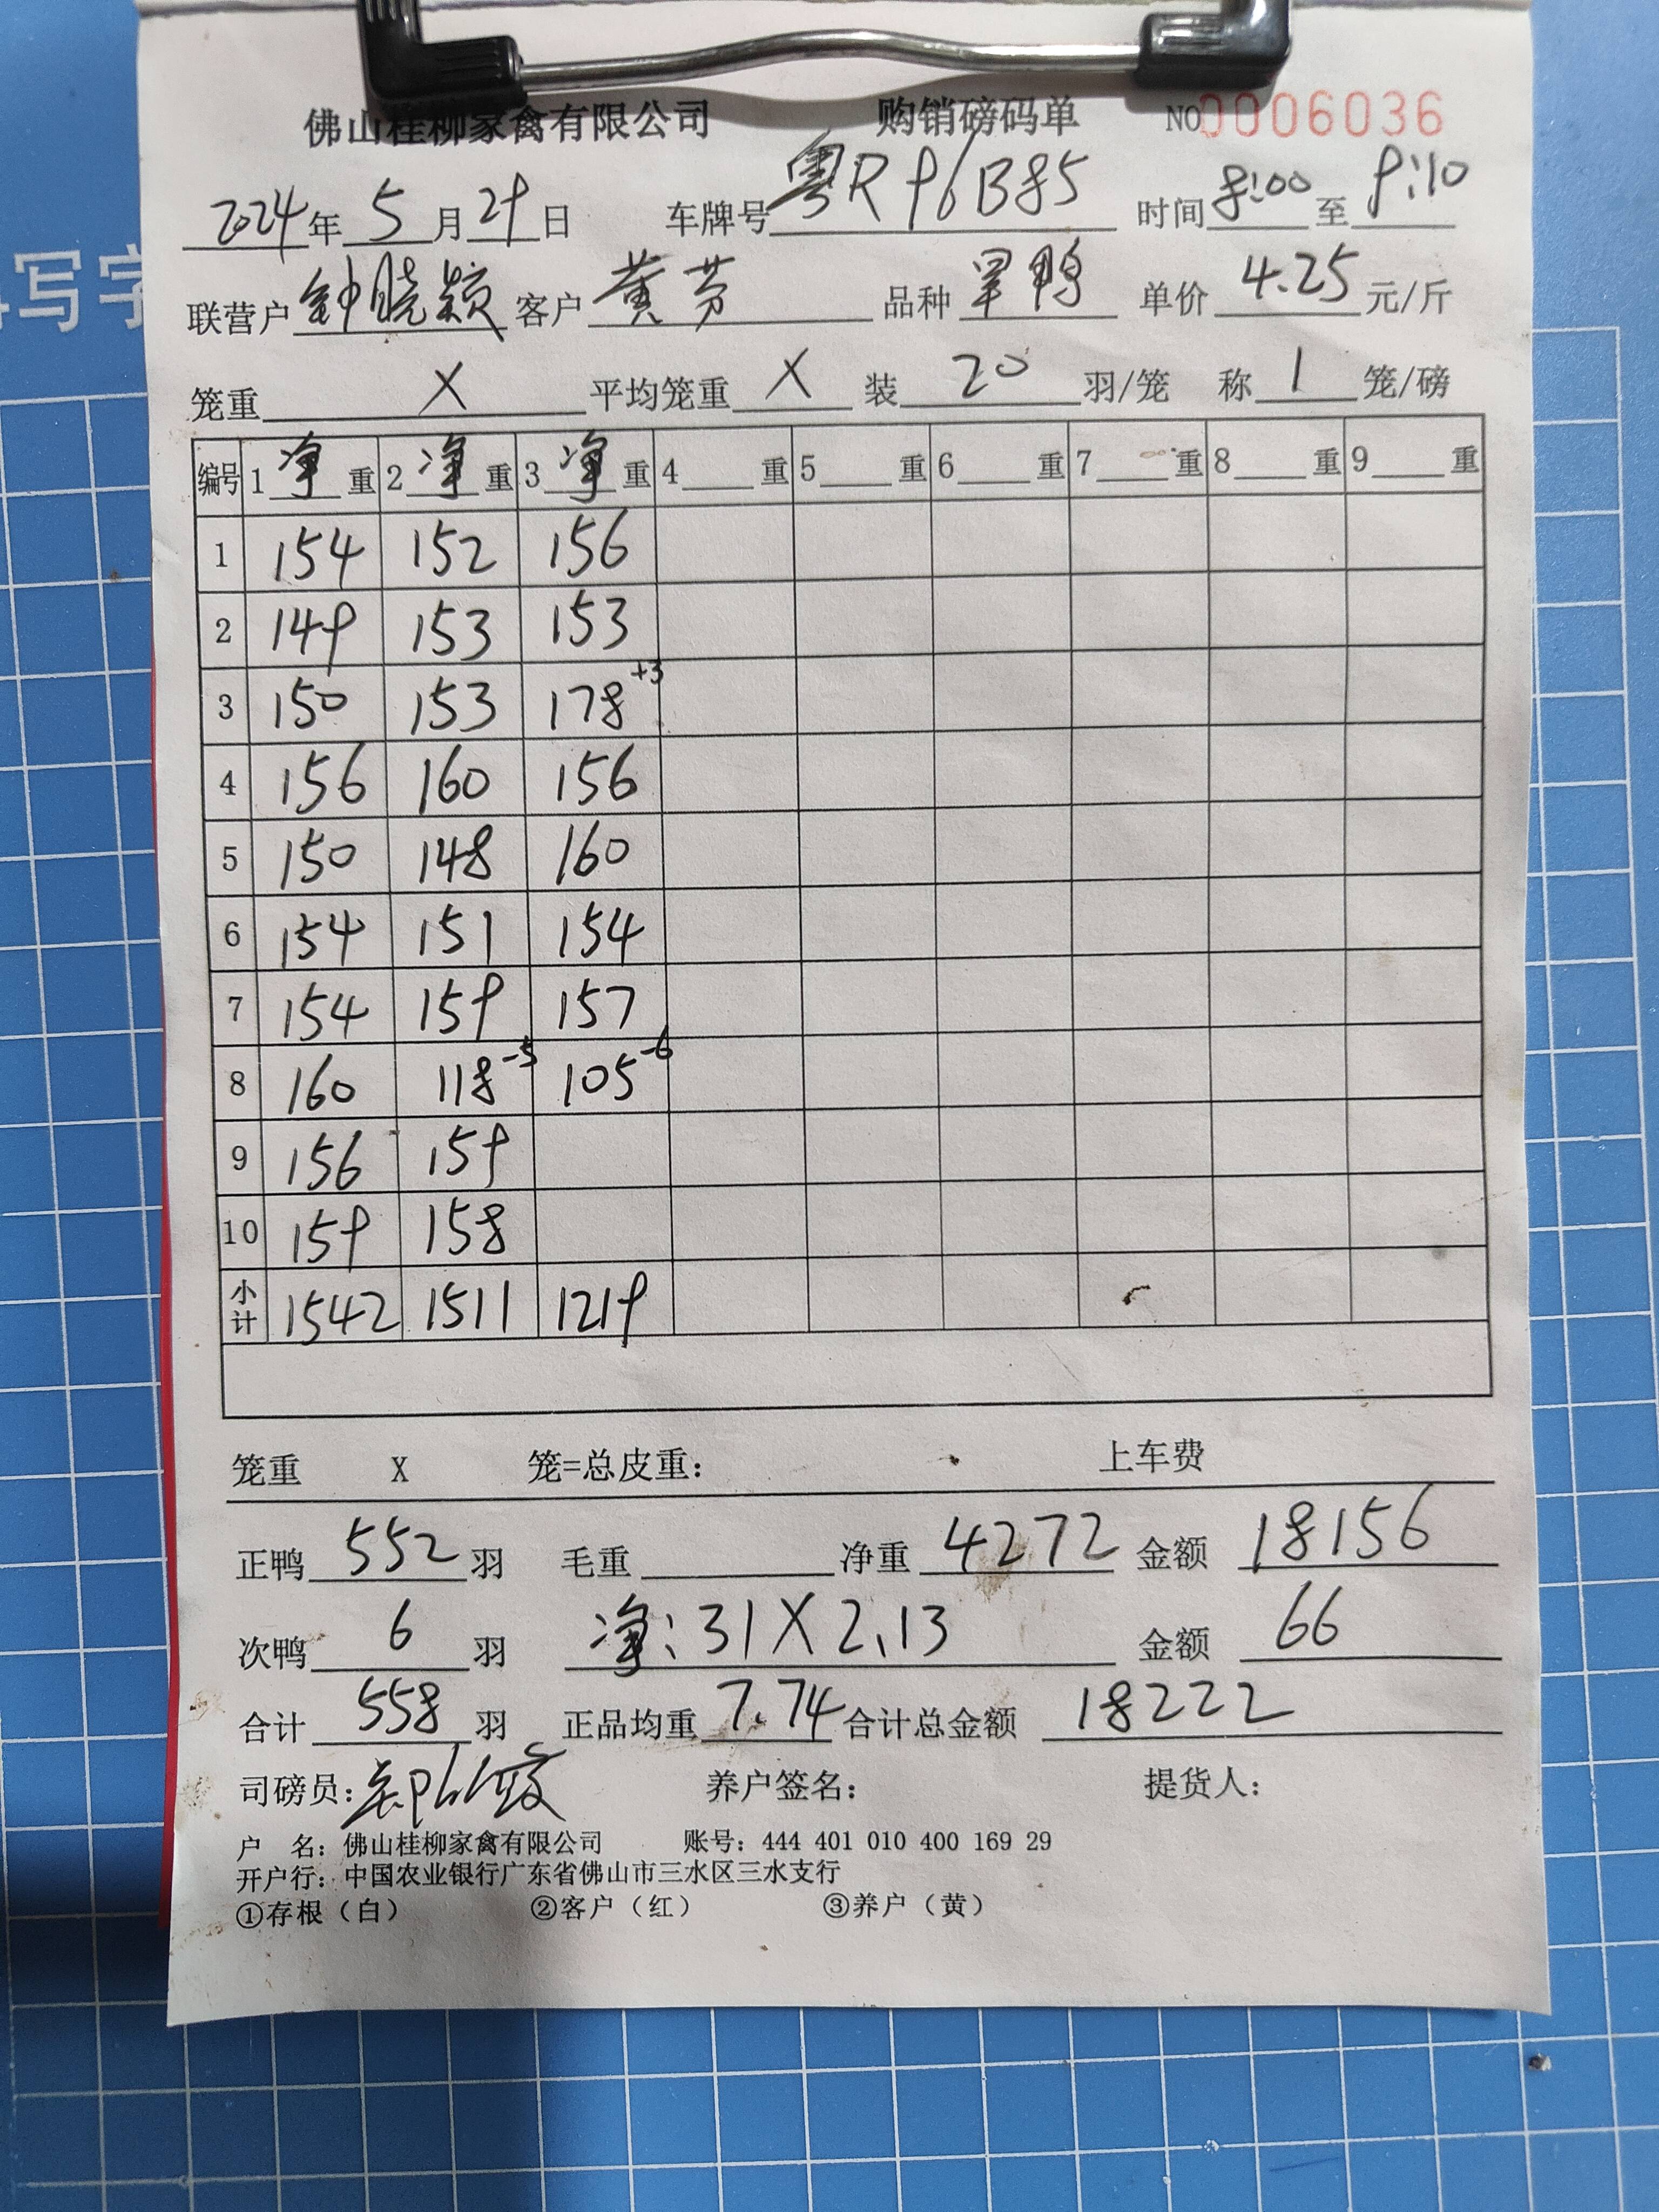 佛山桂柳家禽有限公司 购销磅码单 NO 0006036
2024年 5月29日 车牌号 粤R96B85 时间 8:00 至 9:10
写字
联营户 钟晓颖 客户 黄芬 品种 旱鸭 单价 4.25 元/斤
笼重 X 平均笼重 X 装 20 羽/笼 称 1 笼/磅
编号 1 净 重 2 净 重 3 净 重 4 重 5 重 6 重 7 重 8 重 9 重
1 154 152 156
2 149 153 153
3 150 153 178 +3
4 156 160 156
5 150 148 160
6 154 151 154
7 154 159 157
8 160 118 -5 105 -6
9 156 159
10 159 158
小计 1542 1511 1219
笼重 X 笼=总皮重: 上车费
正鸭 552 羽 毛重 净重 4272 金额 18156
次鸭 6 羽 净: 31X2.13 金额 66
合计 558 羽 正品均重 7.74 合计总金额 18222
司磅员: 养户签名: 提货人:
户 名: 佛山桂柳家禽有限公司 账号: 444 401 010 400 169 29
开户行: 中国农业银行广东省佛山市三水区三水支行
①存根（白） ②客户（红） ③养户（黄）